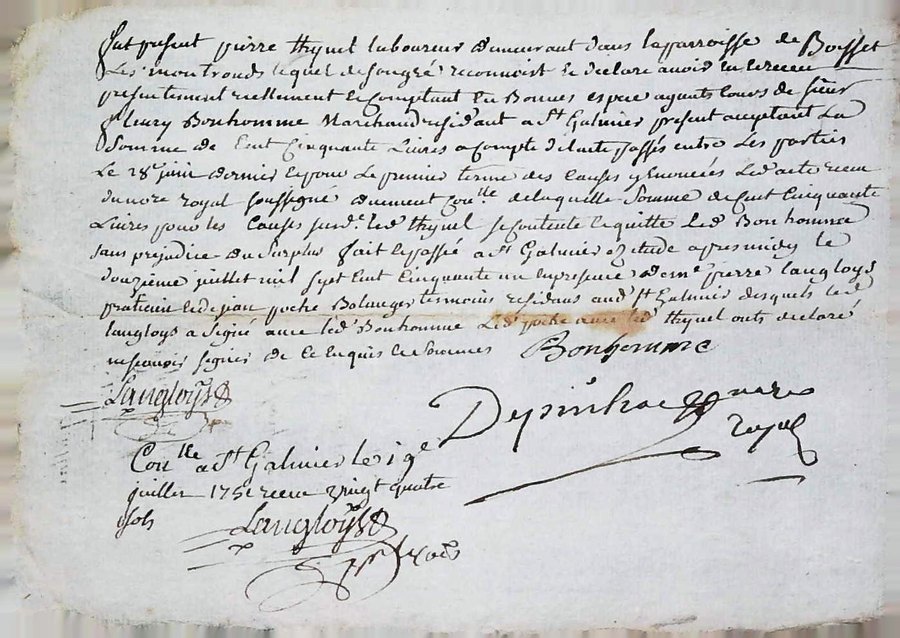 fut present pierre thynel laboureur demeurant dans la parroisse de Boisset
Les montronds lequel de son gré reconnoist et declare avoir eu et receu
presentement reellement et Comptant En Bonnes espece ayants Cours de sieur
fleury Bonhomme Marchand residant a St Galmier present acceptant La
Somme de Cent Cinquante Livres a Compte de lacte passés entre Les parties
Le 28e juin dernier et pour Le premier terme des Causes y Enoncées Led acte receu
du nore royal soussigné duement Conlle de laquelle Somme de Cent Cinquante
Livres pour les Causes susde led thynel se Contente et quitte Led Bonhomme
sans prejudice du surplus fait et passé a St Galmier etude apres midy le
douzième juillet mil sept Cent Cinquante un En presence de me pierre langloys
praticien et de jean poche Bolanger temoins residans aud St Galmier desquels led
langloys a signé avec led Bonhomme Led poche avec led thynel onts declaré
ne scavoir signer de ce Enquis et Sommes Bonhomme
Langloys
Depinhac nore
royal
Conlle a St Galmier le 19e
juillet 1751 receu vingt quatre
sols
Langloys